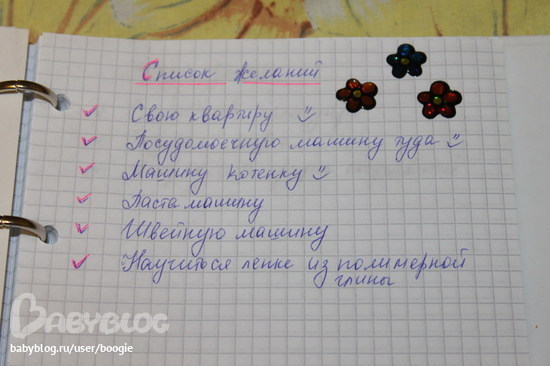 Список желаний
Свою квартиру
Посудомоечную машину туда
Машину котенку
Паста машину
Швейную машину
Научиться лепке из полимерной
глины
BABYBLOG
babyblog.ru/user/boogie